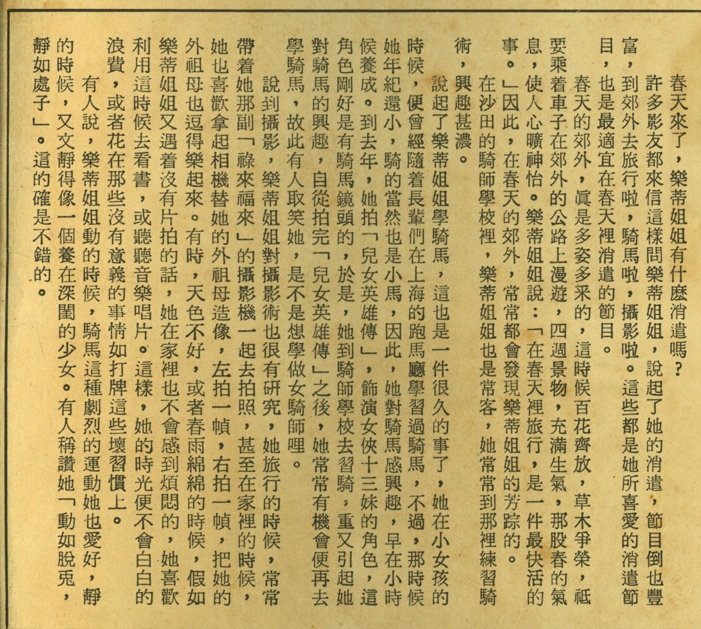 春天來了，樂蒂姐姐有什麽消遣嗎？
許多影友都來信這樣問樂蒂姐姐，說起了她的消遣，節目倒也豐
富，到郊外去旅行啦，騎馬啦，攝影啦。這些都是她所喜愛的消遣節
目，也是最適宜在春天裡消遣的節目。
春天的郊外，眞是多姿多釆的，這時候百花齊放，草木爭榮，祗
要乘着車子在郊外的公路上漫遊，四週景物，充滿生氣，那股春的氣
息，使人心曠神怡。樂蒂姐姐說：「在春天裡旅行，是一件最快活的
事。」因此，在春天的郊外，常常都會發現樂蒂姐姐的芳踪的。
在沙田的騎師學校裡，樂蒂姐姐也是常客，她常常到那裡練習騎
術，興趣甚濃。
說起了樂蒂姐姐學騎馬，這也是一件很久的事了，她在小女孩的
時候，便曾經隨着長輩們在上海的跑馬廳學習過騎馬，不過，那時候
她年紀還小，騎的當然也是小馬，因此，她對騎馬感興趣，早在小時
候養成。到去年，她拍「兒女英雄傳」，飾演女俠十三妹的角色，這
角色剛好是有騎馬鏡頭的，於是，她到騎師學校去習騎，重又引起她
對騎馬的興趣，自從拍完「兒女英雄傳」之後，她常常有機會便再去
學騎馬，故此有人取笑她，是不是想學做女騎師哩。
說到攝影，樂蒂姐姐對攝影術也很有研究，她旅行的時候，常常
帶着她那副「祿來福來」的攝影機一起去拍照，甚至在家裡的時候，
她也喜歡拿起相機替她的外祖母造像，左拍一幀，右拍一幀，把她的
外祖母也逗得樂起來。有時，天色不好，或者春雨綿綿的時候，假如
樂蒂姐姐又遇着沒有片拍的話，她在家裡也不會感到煩悶的，她喜歡
利用這時候去看書，或聽聽音樂唱片。這樣，她的時光便不會白白的
浪費，或者花在那些沒有意義的事情如打牌這些壞習慣上。
有人說，樂蒂姐姐動的時候，騎馬這種劇烈的運動她也愛好，靜
的時候，又文靜得像一個養在深閨的少女。有人稱讚她「動如脫兎，
靜如處子」。這的確是不錯的。